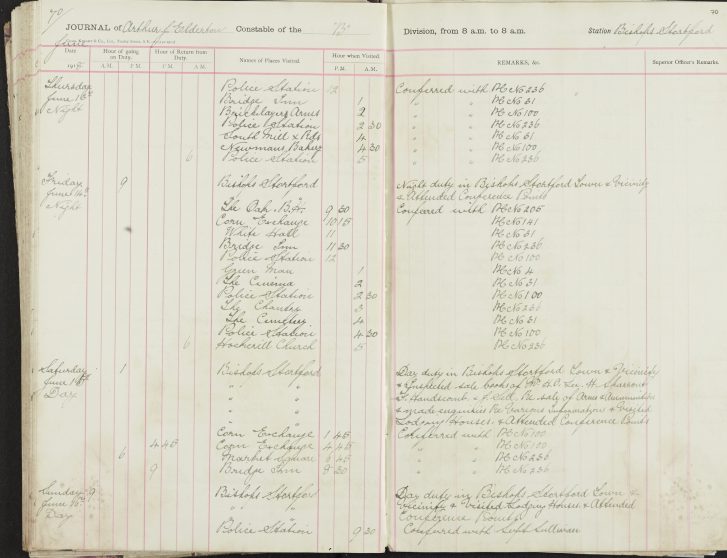 70
JOURNAL of Arthur J Elderton Constable of the "B"
June
Date 191 Hour of going on Duty. A.M. P.M. Hour of Return from Duty. P.M. A.M. Names of Places Visited. Hour when Visited. P.M. A.M.
Thursday Police Station 12
June Bridge Inn 1
Night Bricklayers Arms 2
Police Station 2 30
South Mill 4
Newmans Bakery 4 30
6 Police Station 5
Friday 9 Bishops Stortford
June 14th
Night The Oak 9 30
Corn Exchange 10 15
White Hall 11
Bridge Inn 11 30
Police Station 12
Green Man 1
The Cinema 2
Police Station 2 30
The Chantry 3
The Cemetery 4
Police Station 4 30
6 Hockerill Church 5
Saturday 1 Bishops Stortford
June " "
Day " "
" "
" "
Corn Exchange 1 45
4 45 Corn Exchange 4 45
6 Market Square 6 45
9 Bridge Inn 8 30
Sunday 9 Bishops Stortford
June 16th " "
Day
Police Station 9 30
70
Division, from 8 a.m. to 8 a.m. Station Bishops Stortford
REMARKS, &c. Superior Officer's Remarks.
Conferred with PC No 236
" " PC No 31
" " PC No 100
" " PC No 236
" " PC No 31
" " PC No 100
" " PC No 236
Night duty in Bishops Stortford Town & Vicinity
& Attended Conference Points
Conferred with PC No 205
PC No 141
PC No 31
PC No 236
PC No 100
PC No 4
PC No 31
PC No 100
PC No 236
PC No 31
PC No 100
PC No 236
Day duty in Bishops Stortford Town & Vicinity
& Inspected sale books of
F. Handscomb & J. Sell, Re sale of Arms & Ammunition
& made enquiries Re Various informations & Visited
Lodging Houses & Attended Conference Points
Conferred with PC No 100
" " PC No 100
" " PC No 236
" " PC No 236
Day duty in Bishops Stortford Town &
Vicinity & Visited Lodging Houses & Attended
Conference Points
Conferred with Supt Sullivan